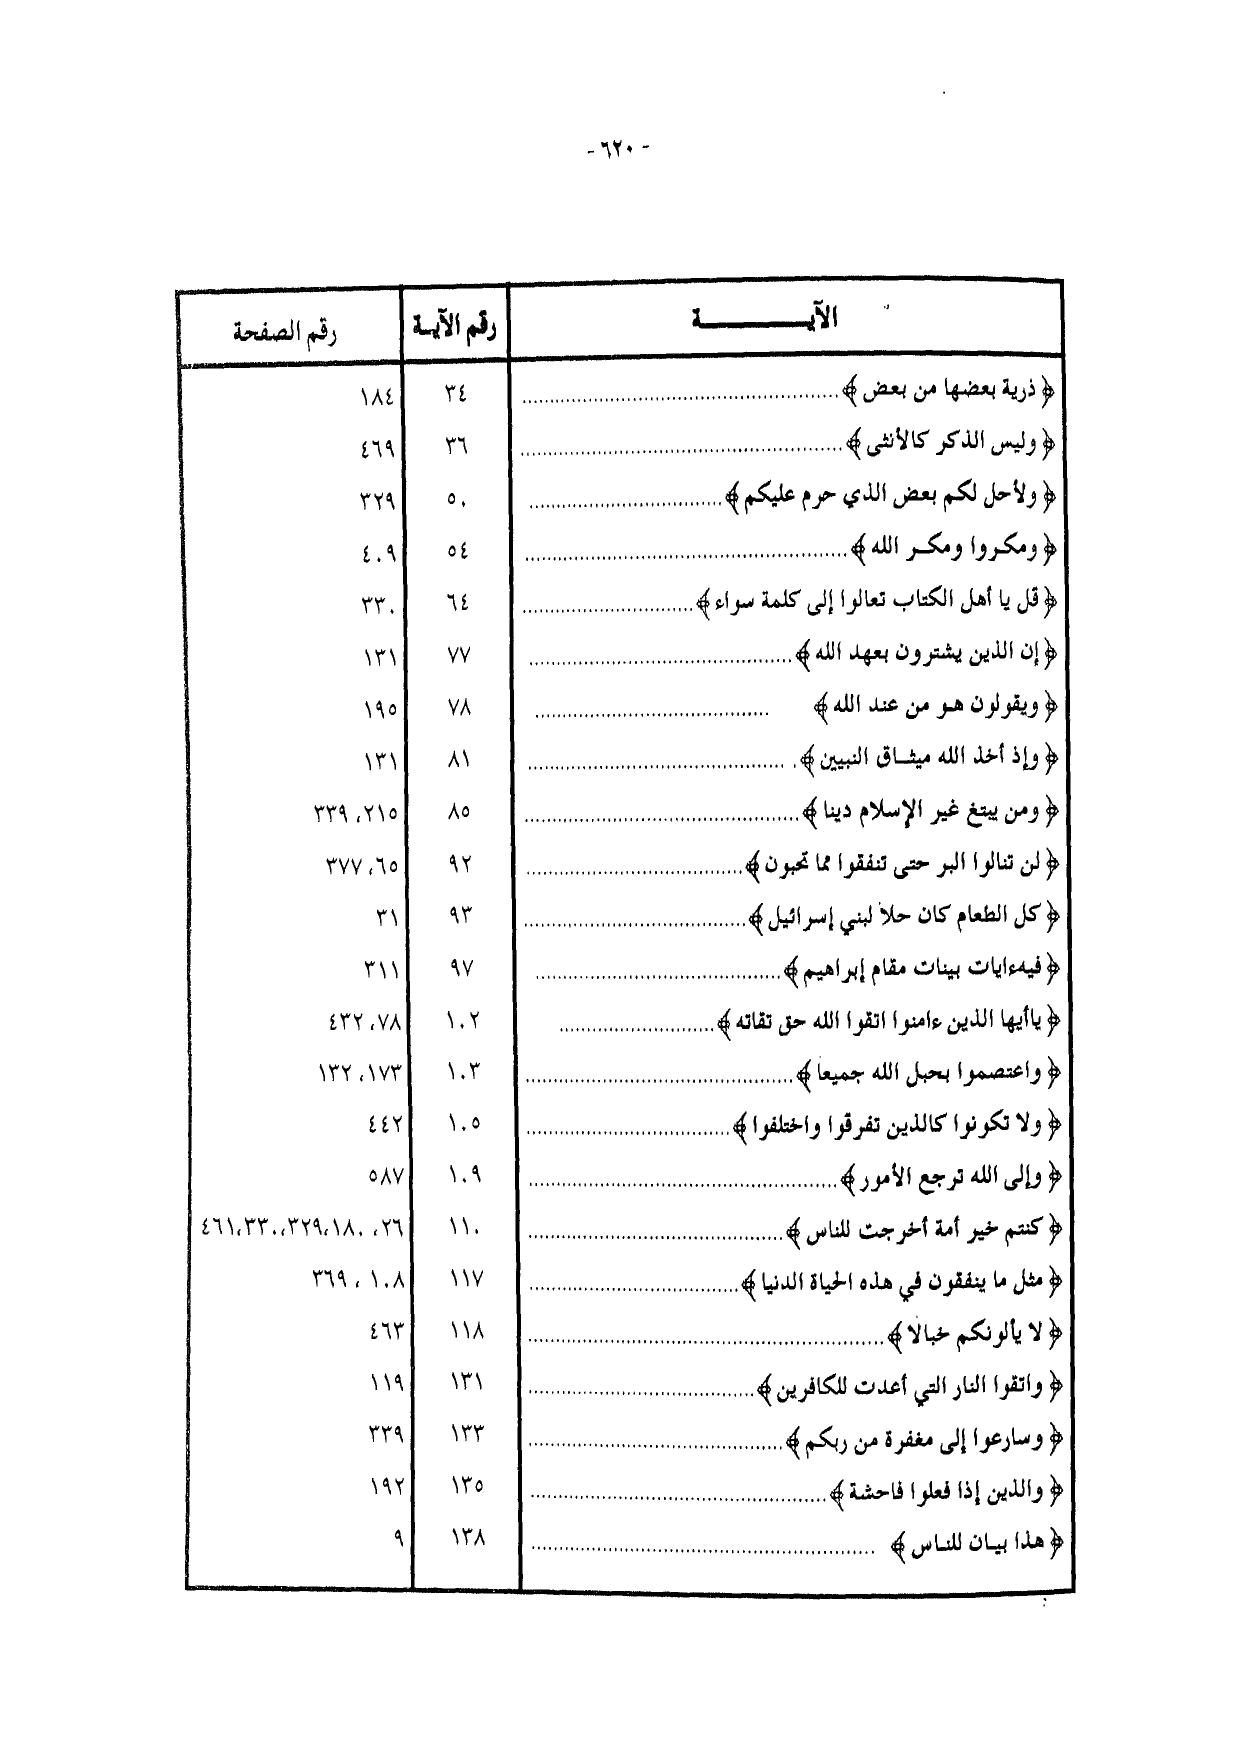 - ٦٢٠ -
الآيـــــــــة رقم الآيـة رقم الصفحة
﴿ ذرية بعضها من بعض ﴾ ٣٤ ١٨٤
﴿ وليس الذكر كالأنثى ﴾ ٣٦ ٤٦٩
﴿ ولأحل لكم بعض الذي حرم عليكم ﴾ ٥٠ ٣٢٩
﴿ ومكروا ومكر الله ﴾ ٥٤ ٤٠٩
﴿ قل يا أهل الكتاب تعالوا إلى كلمة سواء ﴾ ٦٤ ٣٣٠
﴿ إن الذين يشترون بعهد الله ﴾ ٧٧ ١٣١
﴿ ويقولون هو من عند الله ﴾ ٧٨ ١٩٥
﴿ وإذ أخذ الله ميثاق النبيين ﴾ ٨١ ١٣١
﴿ ومن يبتغ غير الإسلام دينا ﴾ ٨٥ ٢١٥، ٣٣٩
﴿ لن تنالوا البر حتى تنفقوا مما تحبون ﴾ ٩٢ ٦٥، ٣٧٧
﴿ كل الطعام كان حلاً لبني إسرائيل ﴾ ٩٣ ٣١
﴿ فيهءايات بينات مقام إبراهيم ﴾ ٩٧ ٣١١
﴿ ياأيها الذين ءامنوا اتقوا الله حق تقاته ﴾ ١٠٢ ٧٨، ٤٣٢
﴿ واعتصموا بحبل الله جميعاً ﴾ ١٠٣ ١٧٣، ١٣٢
﴿ ولا تكونوا كالذين تفرقوا واختلفوا ﴾ ١٠٥ ٤٤٢
﴿ وإلى الله ترجع الأمور ﴾ ١٠٩ ٥٨٧
﴿ كنتم خير أمة أخرجت للناس ﴾ ١١٠ ٢٦، ١٨٠، ٣٢٩، ٣٣٠، ٤٦١
﴿ مثل ما ينفقون في هذه الحياة الدنيا ﴾ ١١٧ ١٠٨ ، ٣٦٩
﴿ لا يألونكم خبالاً ﴾ ١١٨ ٤٦٣
﴿ واتقوا النار التي أعدت للكافرين ﴾ ١٣١ ١١٩
﴿ وسارعوا إلى مغفرة من ربكم ﴾ ١٣٣ ٣٣٩
﴿ والذين إذا فعلوا فاحشة ﴾ ١٣٥ ١٩٢
﴿ هذا بيـان للنـاس ﴾ ١٣٨ ٩